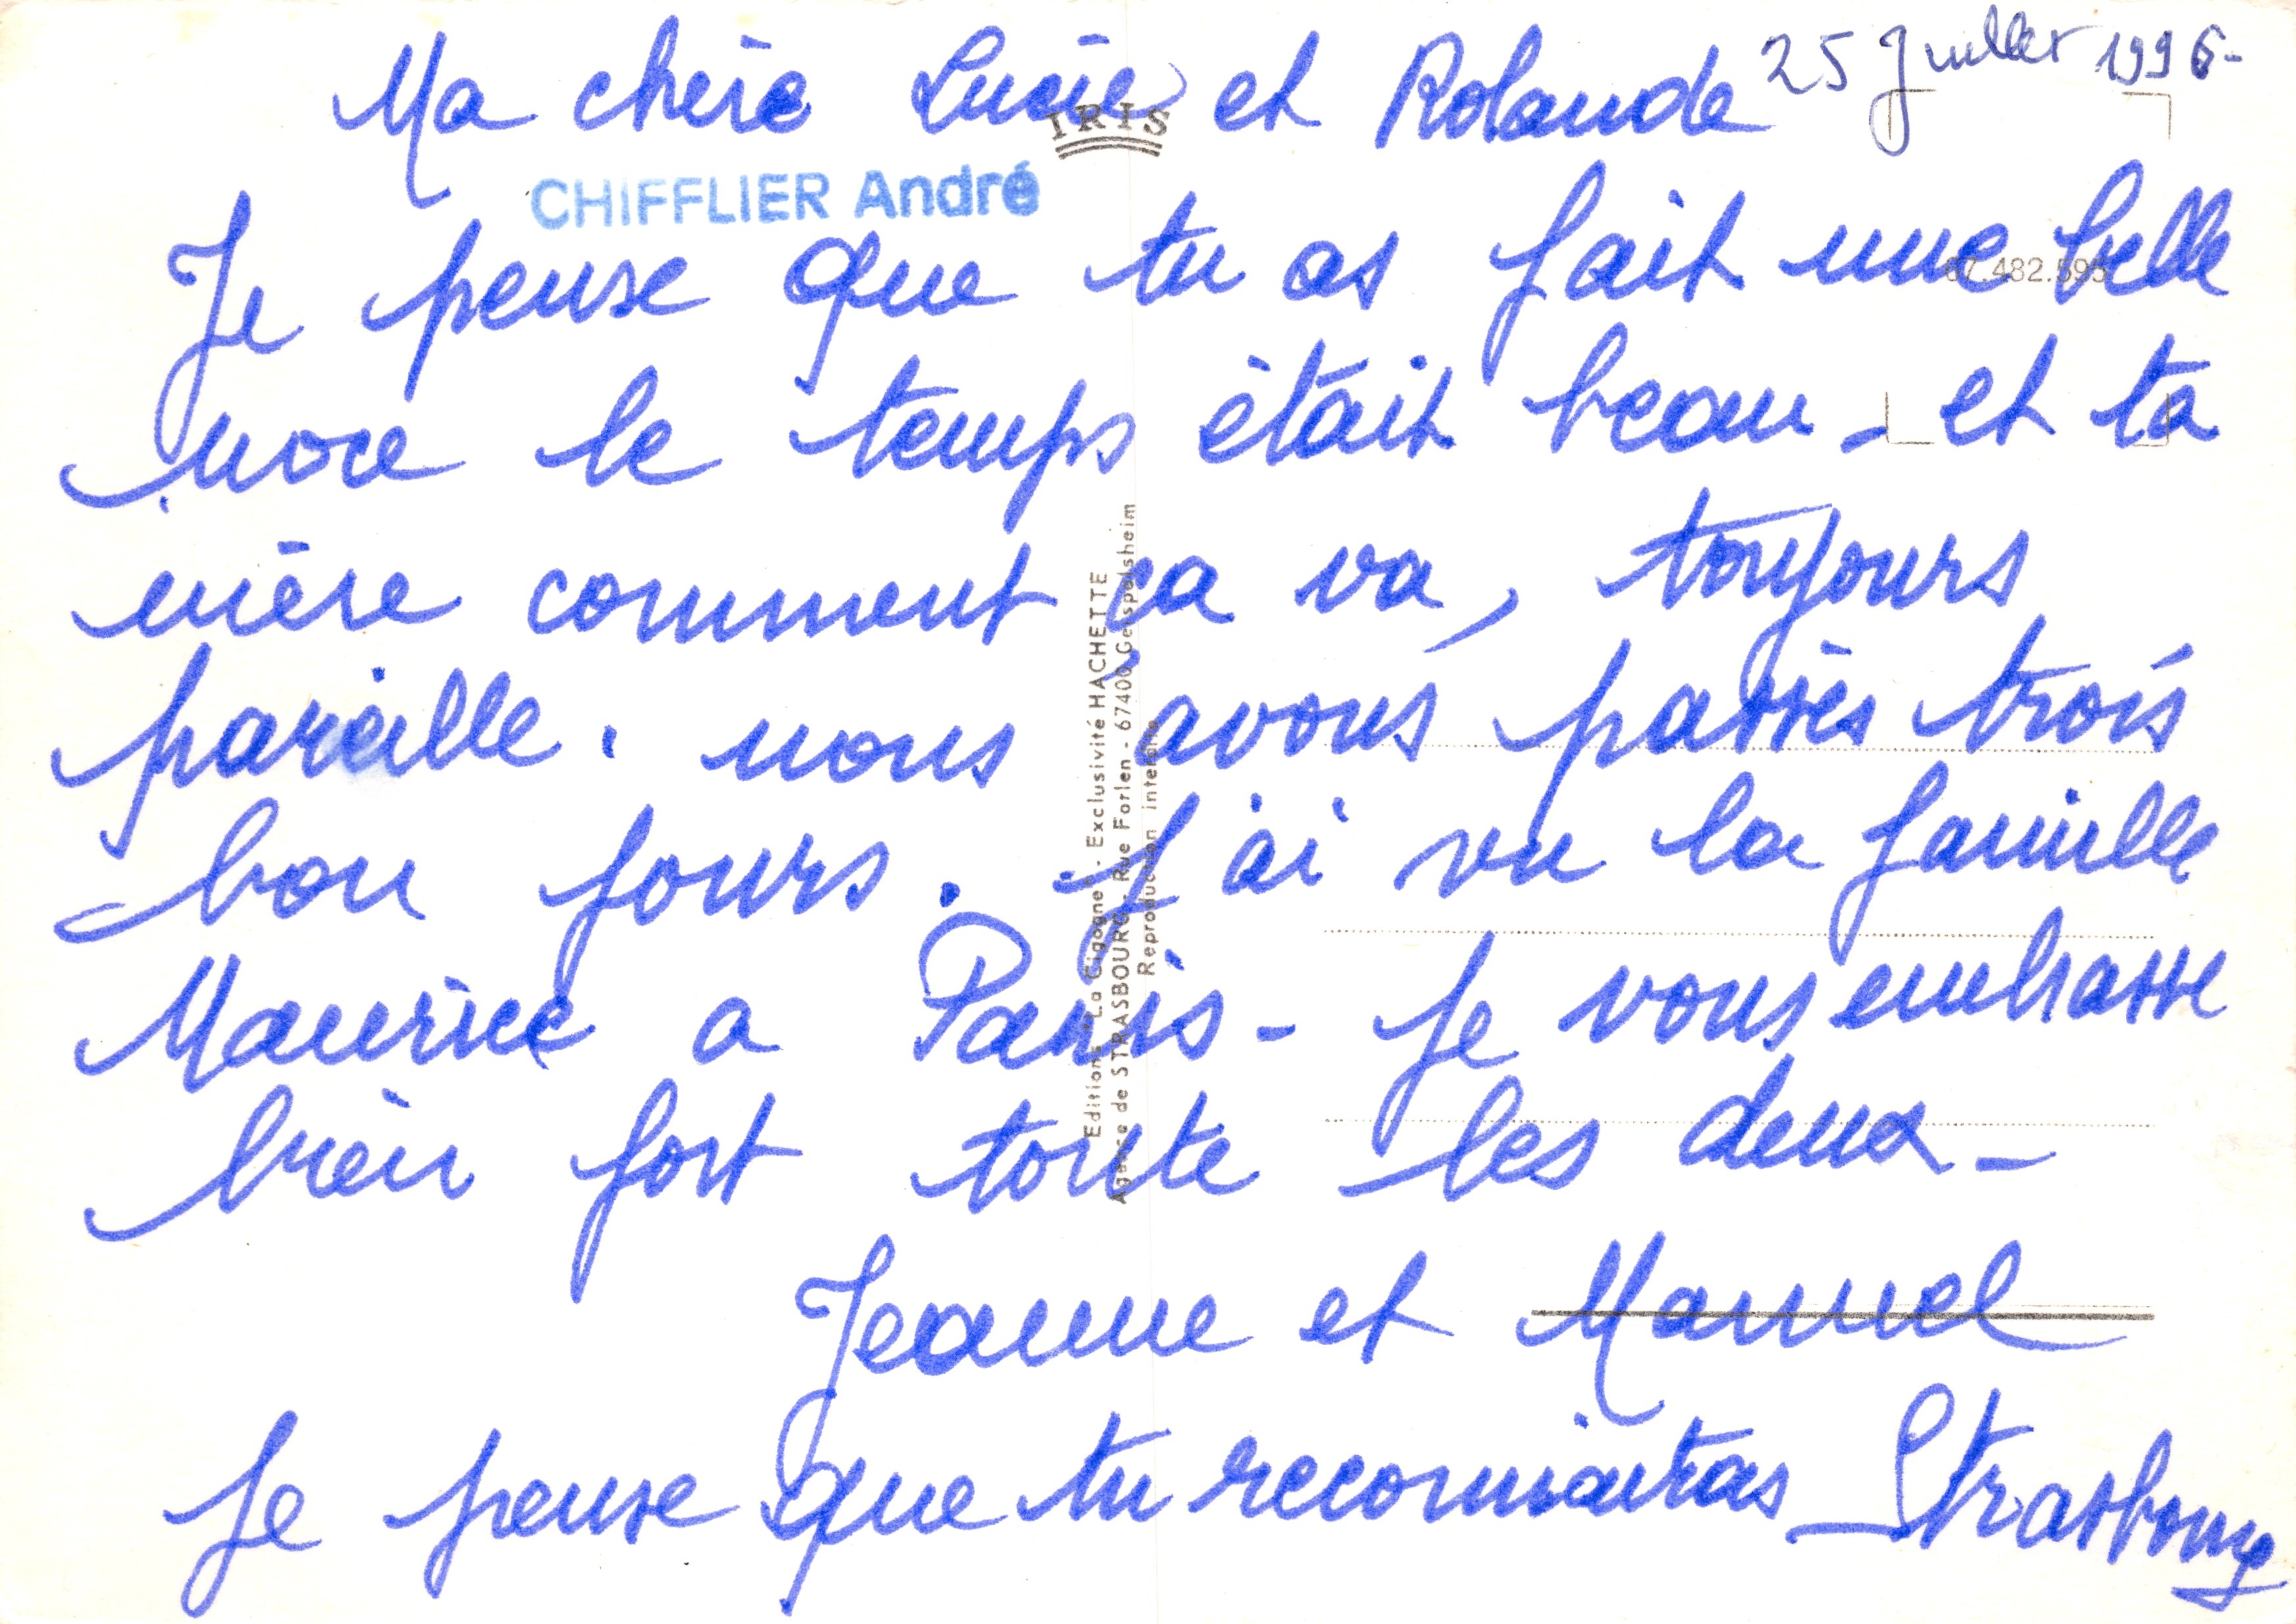 25 Juillet 1996-
Ma chère Lucie et Rolande
IRIS
CHIFFLIER André
67.482.595
Je pense que tu as fait une belle
noce le temps était beau - et ta
mère comment ça va, toujours
pareille. nous avons passés trois
bon jours. J'ai vu la famille
Maurice a Paris - je vous embrasse
bien fort toute les deux -
Jeanne et Manuel
je pense que tu reconnaitras Strasbourg
Editions "La Cigogne" - Exclusivité HACHETTE
Agence de STRASBOURG - Rue Forlen - 67400 Geispolsheim
Reproduction interdite